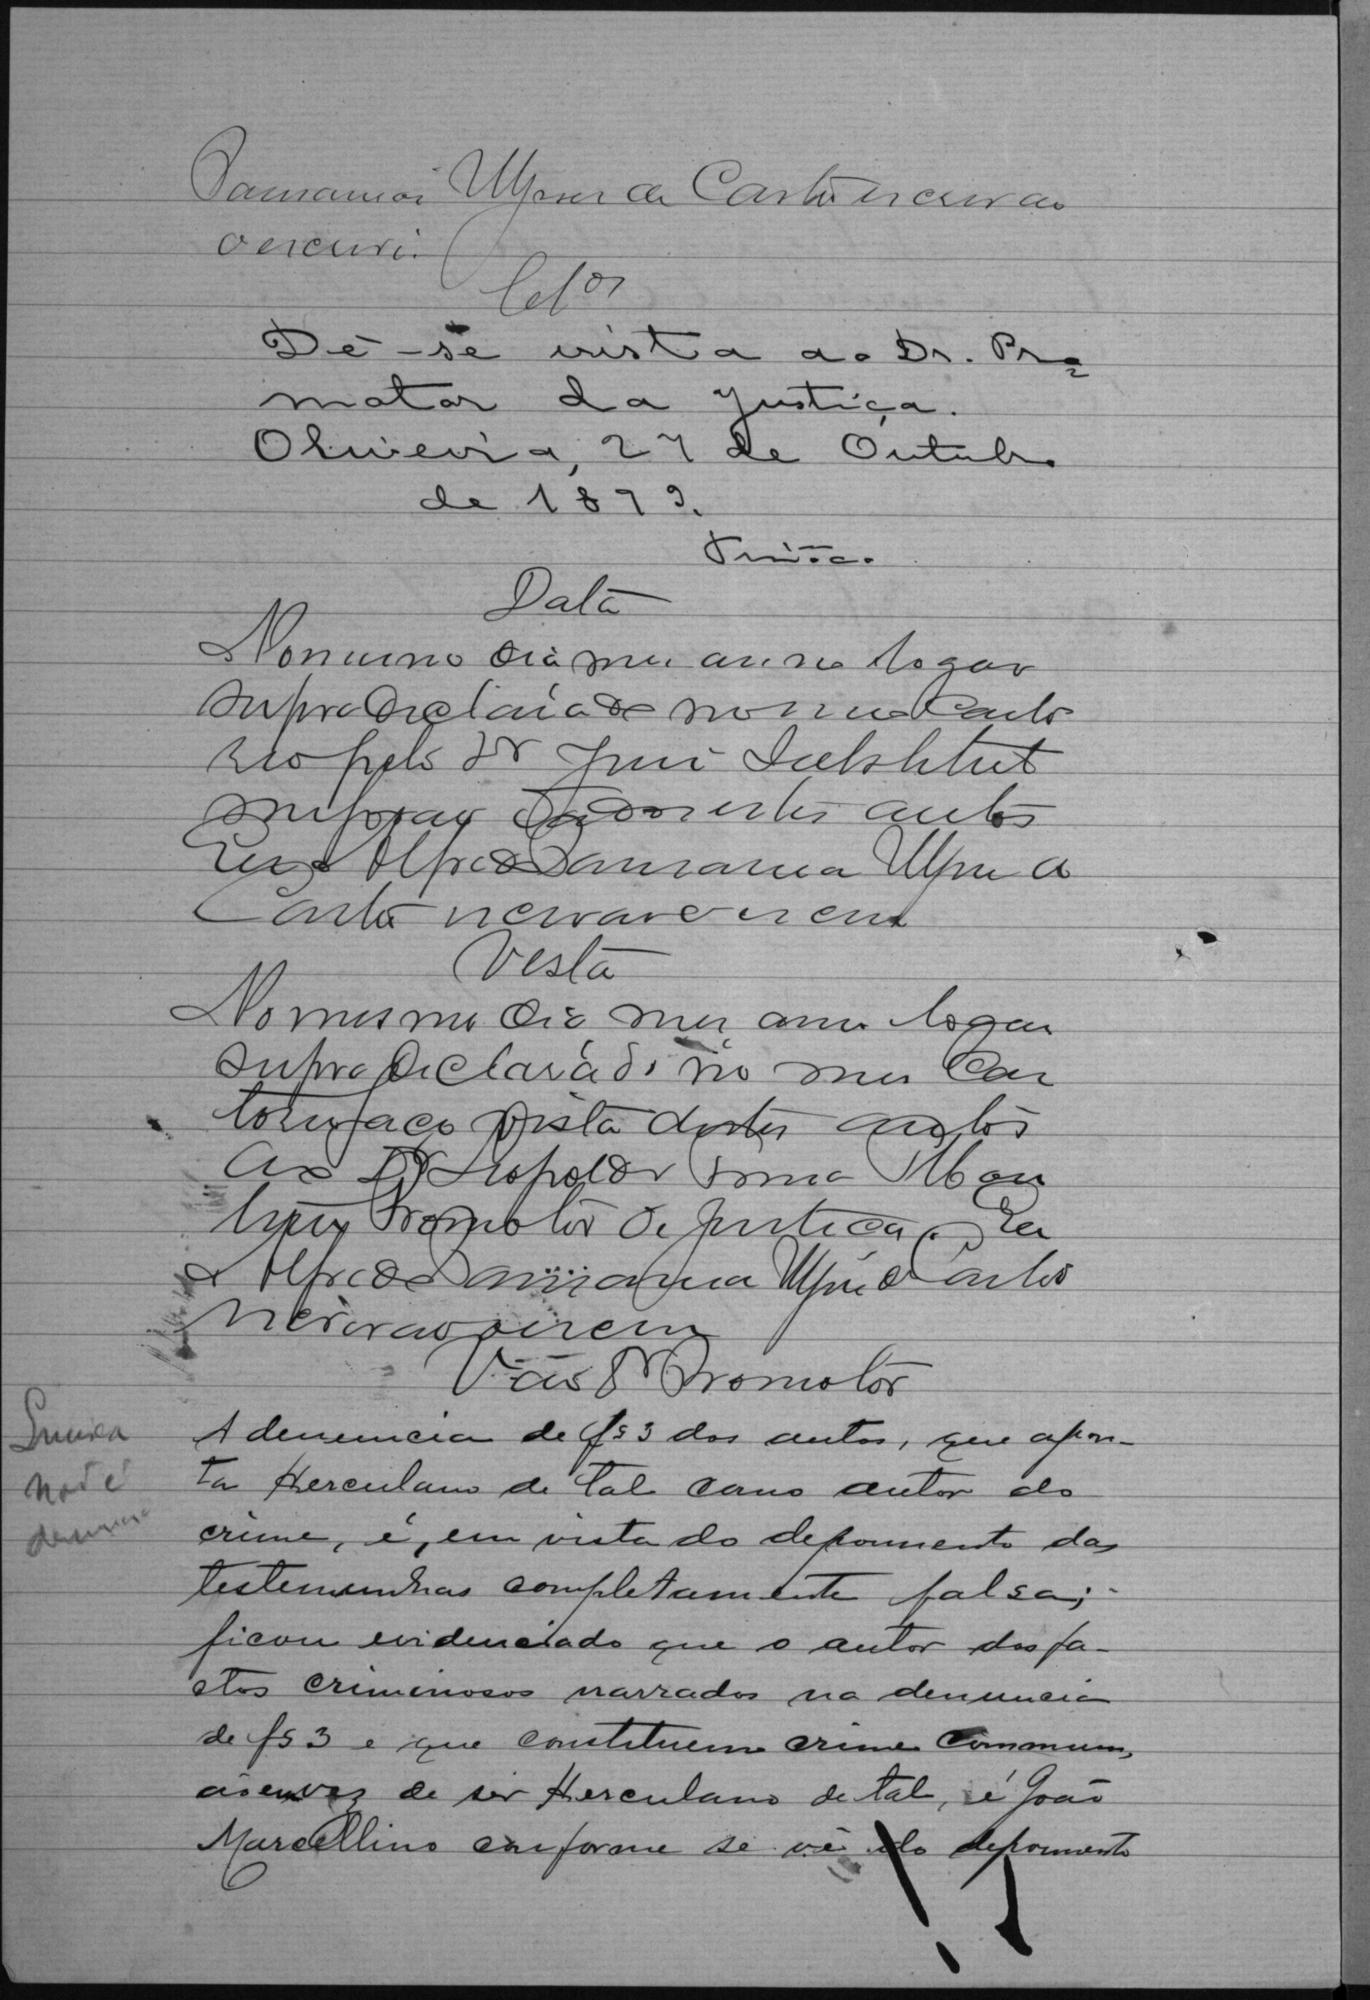 de Castro escrivão
o escrevi.
Clsos
Dê-se vista ao Dr. Pro
motor da Justiça.
Oliveira, 27 de Outubro
de 1879.
Data
No mesmo dia mez anno logar
supra declarado no meu Carto
rio pelo Dr José
me forão dados estes autos
Eu Alfredo
Castro escrivão o escrevi
Vista
No mesmo dia mez anno logar
supra declarado no meu Car
torio faço vista destes autos
ao Dr Leopoldo
Promotor de Justiça. Eu
Alfredo Castro
escrivão o escrevi
Vão Dr Promotor
A denuncia de fs 3 dos autos, que apon-
ta Herculano de tal como autor do
crime, é, em vista do depoimento das
testemunhas completamente falsa;
ficou evidenciado que o autor dos fa-
ctos criminosos narrados na denuncia
de fs 3 e que constituem crime commum,
ao envez de ser Herculano de tal, é João
Marcellino conforme se vê do depoimento